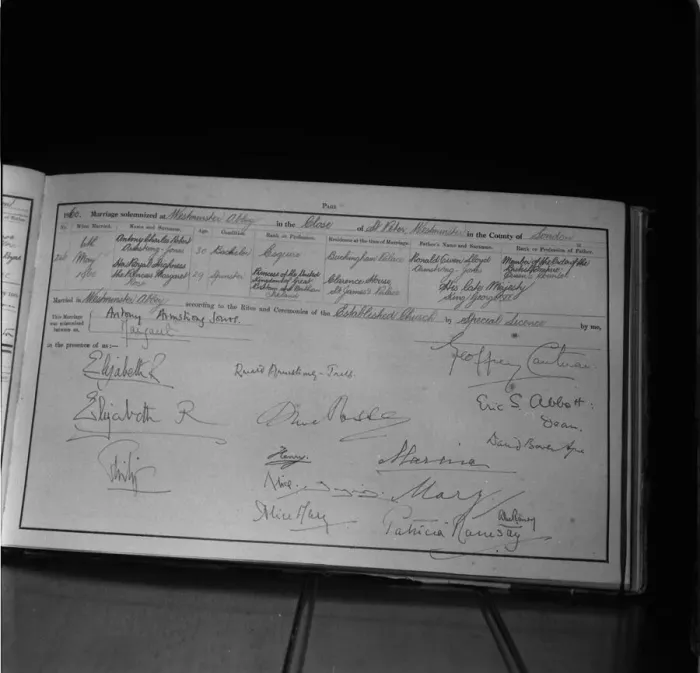 PAGE
1960. Marriage solemnized at Westminster Abbey in the Close of St. Peter Westminster in the County of London
No. When Married. Name and Surname. Age. Condition. Rank or Profession. Residence at the time of Marriage. Father's Name and Surname. Rank or Profession of Father.
6th Antony Charles Robert Armstrong-Jones 30 Bachelor Esquire Kensington Palace Ronald Owen Lloyd Armstrong-Jones Member of the Order of the British Empire Queen's Counsel
May
1960 Her Royal Highness The Princess Margaret Rose 29 Spinster Princess of the United Kingdom of Great Britain and Northern Ireland Clarence House St James's Palace His Late Majesty King George VI
Married in Westminster Abbey according to the Rites and Ceremonies of the Established Church by Special Licence by me,
This Marriage was solemnized between us, Antony Armstrong Jones.
Margaret
Geoffrey Cantuar
in the presence of us:—
Elizabeth R Armstrong-Jones
Eric S. Abbott: Dean.
Elizabeth R
Philip Henry Marina
Alice Mary
Alice Mary Patricia Ramsay